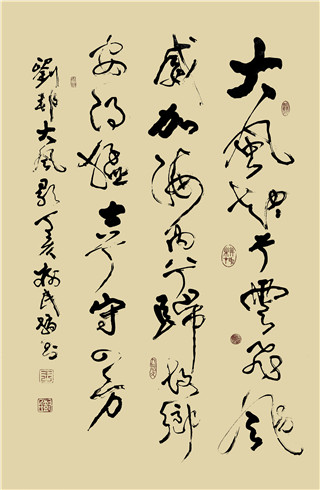 大風起兮雲飛颺
威加海內兮歸故鄉
安得猛士兮守四方
劉邦大風歌丁亥